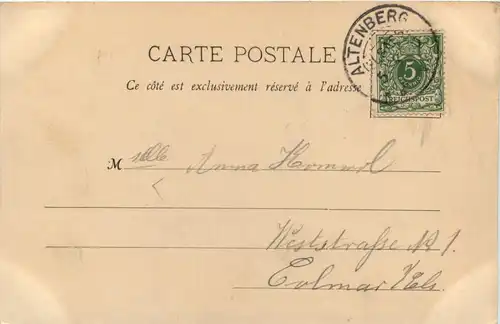 CARTE POSTALE
Ce côté est exclusivement réservé à l'adresse
ALTENBERG
5
REICHSPOST
Mselle Anna
Weststrasse N 1.
Colmar /Els.